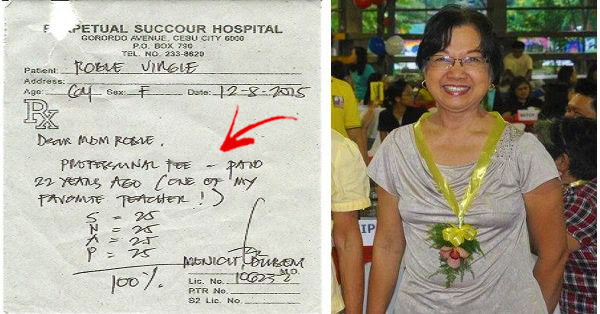 PERPETUAL SUCCOUR HOSPITAL
GORORDO AVENUE, CEBU CITY 6000
P.O. BOX 790
TEL. NO. 233-8620
Patient: ROBLE VIRGIE
Address:
Age: 64 Sex: F Date: 12-8-2015
Rx
DEAR MDM ROBLE,
PROFESSIONAL FEE - PAID
22 YEARS AGO (ONE OF MY
FAVORITE TEACHER!)
S = 25
N = 25
A = 25
P = 25
100%
M.D.
Lic. No.
PTR No.
S2 Lic. No.
IP